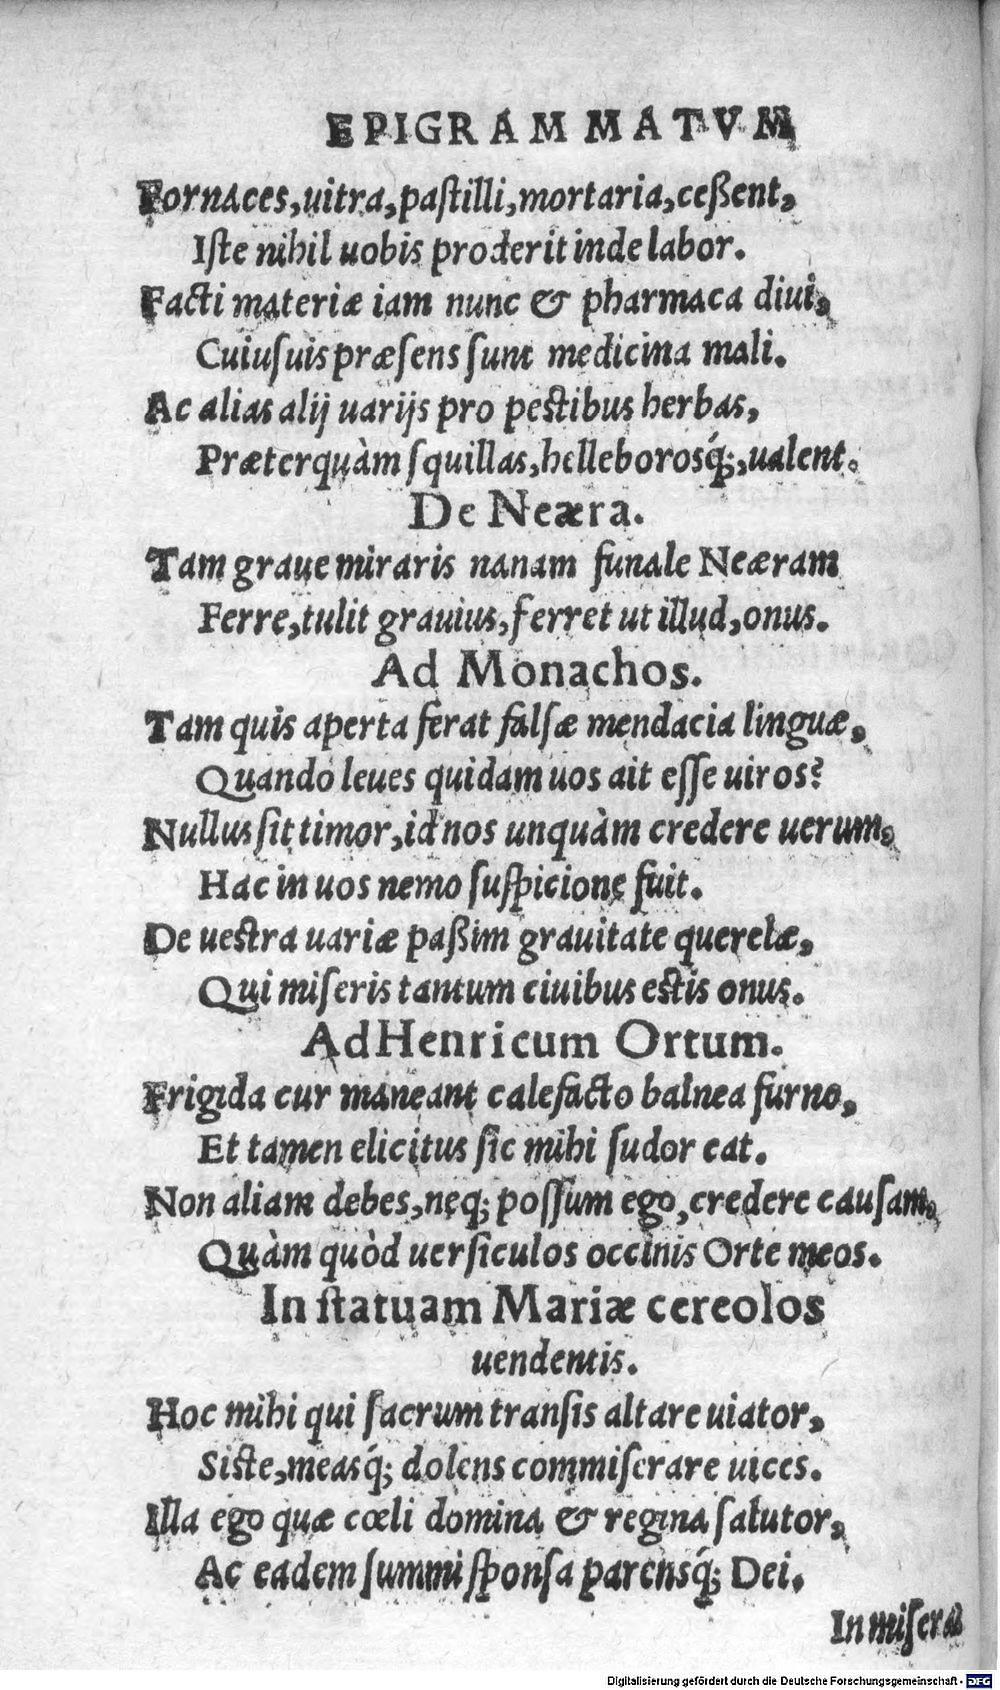 EPIGRAMMATVM
Fornaces, uitra, paſtilli, mortaria, ceßent,
Iſte nihil uobis proderit inde labor.
Facti materiæ iam nunc & pharmaca diui,
Cuiuſuis præſens ſunt medicina mali.
Ac alias alij uarijs pro peſtibus herbas,
Præterquàm ſquillas, helleborosq́;, ualent.
De Neæra.
Tam graue miraris nanam funale Neæram
Ferre, tulit grauius, ferret ut illud, onus.
Ad Monachos.
Tam quis aperta ferat falſæ mendacia linguæ,
Quando leues quidam uos ait eſſe uiros?
Nullus ſit timor, id nos unquàm credere uerum,
Hac in uos nemo ſuſpicione fuit.
De ueſtra uariæ paßim grauitate querelæ,
Qui miſeris tantum ciuibus eſtis onus.
Ad Henricum Ortum.
Frigida cur maneant calefacto balnea furno,
Et tamen elicitus ſic mihi ſudor eat.
Non aliam debes, neq; poſſum ego, credere cauſam,
Quàm quòd uerſiculos occinis Orte meos.
In ſtatuam Mariæ cereolos
uendentis.
Hoc mihi qui ſacrum tranſis altare uiator,
Siſte, measq́; dolens commiſerare uices.
Illa ego quæ cœli domina & regina ſalutor,
Ac eadem ſummi ſponſa parensq́; Dei.
In miſera
Digitalisierung gefördert durch die Deutsche Forschungsgemeinschaft - DFG